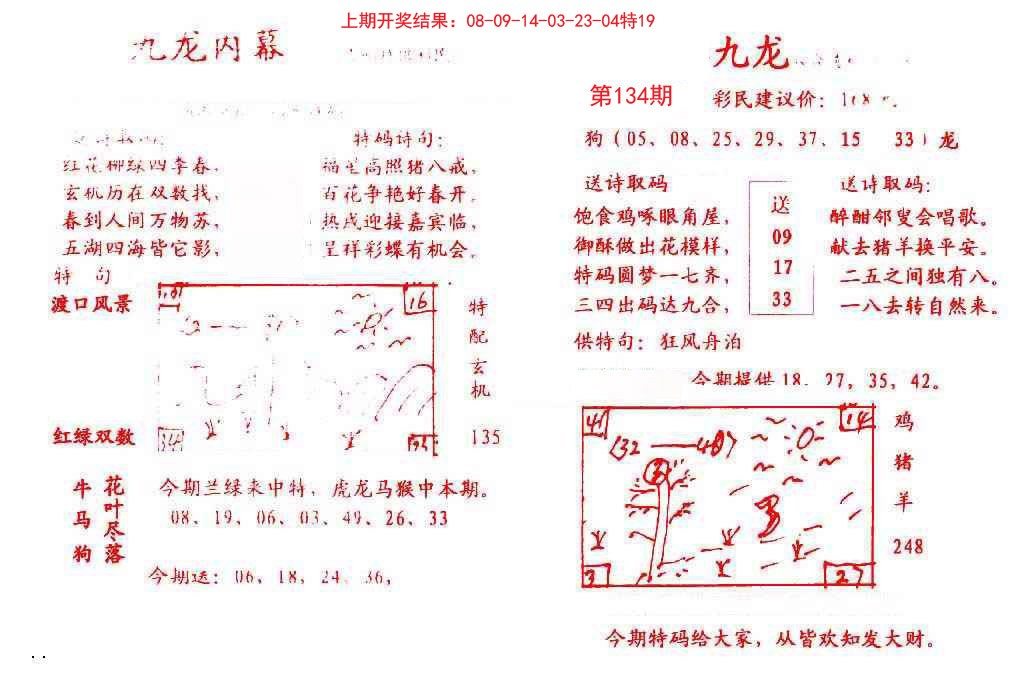 上期开奖结果：08-09-14-03-23-04特19
九龙内幕
特码诗句：
红花柳绿四季春，
玄机历在双数找，
春到人间万物苏，
五湖四海皆它影，
福星高照猪八戒，
百花争艳好春开，
热戌迎接嘉宾临，
呈祥彩蝶有机会。
特 句
渡口风景
红绿双数
16
特
配
玄
机
135
牛
马
狗
花
叶
尽
落
今期兰绿来中特，虎龙马猴中本期。
08、19、06、03、49、26、33
今期送：06、18、24、36，
九龙
第134期
彩民建议价：
狗（05、08、25、29、37、15 33）龙
送诗取码
饱食鸡啄眼角屋，
御酥做出花模样，
特码圆梦一七齐，
三四出码达九合，
送
09
17
33
送诗取码：
醉酣邻叟会唱歌。
献去猪羊换平安。
二五之间独有八。
一八去转自然来。
供特句：狂风舟泊
今期提供18、27，35，42。
41
14
27
鸡
猪
羊
248
今期特码给大家，从皆欢知发大财。